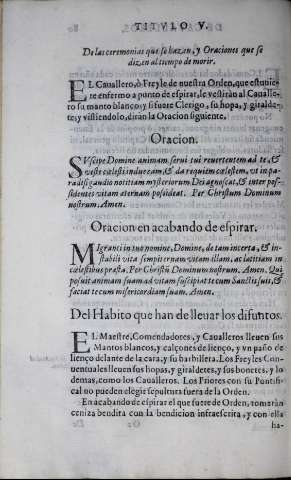 TITVLO V.
De las ceremonias que se hazan, y Oraciones que se
dizen al tiempo de morir.
EL Cauallero, ò Freyle de nuestra Orden, que estuuie-
re enfermo a punto de espirar, le vestiràn al Caualle-
ro su manto blanco, y si fuere Clerigo, su hopa, y giralde-
te, y vistiendolo, diràn la Oracion siguiente.
Oracion.
SVscipe Domine animam serui tui reuertentem ad te, &
veste cælesti indue eam, & da requiem cælestem, vt in pa-
radisi gaudio notitiam mysteriorum Dei agnoscat, & inter pos-
sidentes vitam æternam possideat. Per Christum Dominum
nostrum. Amen.
Oracion en acabando de espirar.
MIgranti in tuo nomine, Domine, de tam incerta, & in-
stabili vita sempiternam vitam illam, ac lætitiam in
cælestibus præsta. Per Christũ Dominum nostrum. Amen. Qui
posuit animam suam ad vitam suscipiat te cum Sanctis suis, &
faciat tecum misericordiam suam. Amen.
Del Habito que han de lleuar los difuntos.
EL Maestre, Comendadores, y Caualleros lleuen sus
Mantos blancos, y calçones de lienço, y vn paño de
lienço delante de la cara, y su barbillera. Los Freyles Con-
uentuales lleuen sus hopas, y giraldetes, y sus bonetes, y lo
demas, como los Caualleros. Los Priores con su Pontifi-
cal no pueden elegir sepultura fuera de la Orden.
En acabando de espirar el que fuere de Orden, tomaràn
ceniza bendita con la bendicion infraescrita, y con ella
ha-